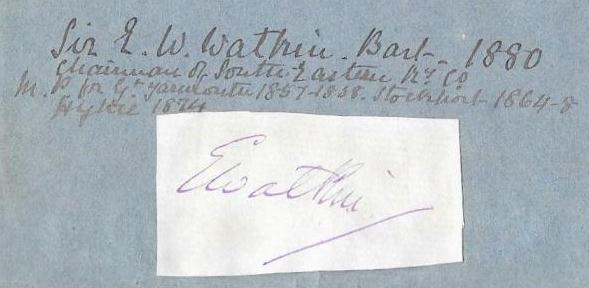 Sir E. W. Watkin. Bart. 1880
Chairman of South Eastern Ry Co
M.P. for Gt Yarmouth 1857-1858. Stockport 1864-8
Hythe 1874
EWatkin